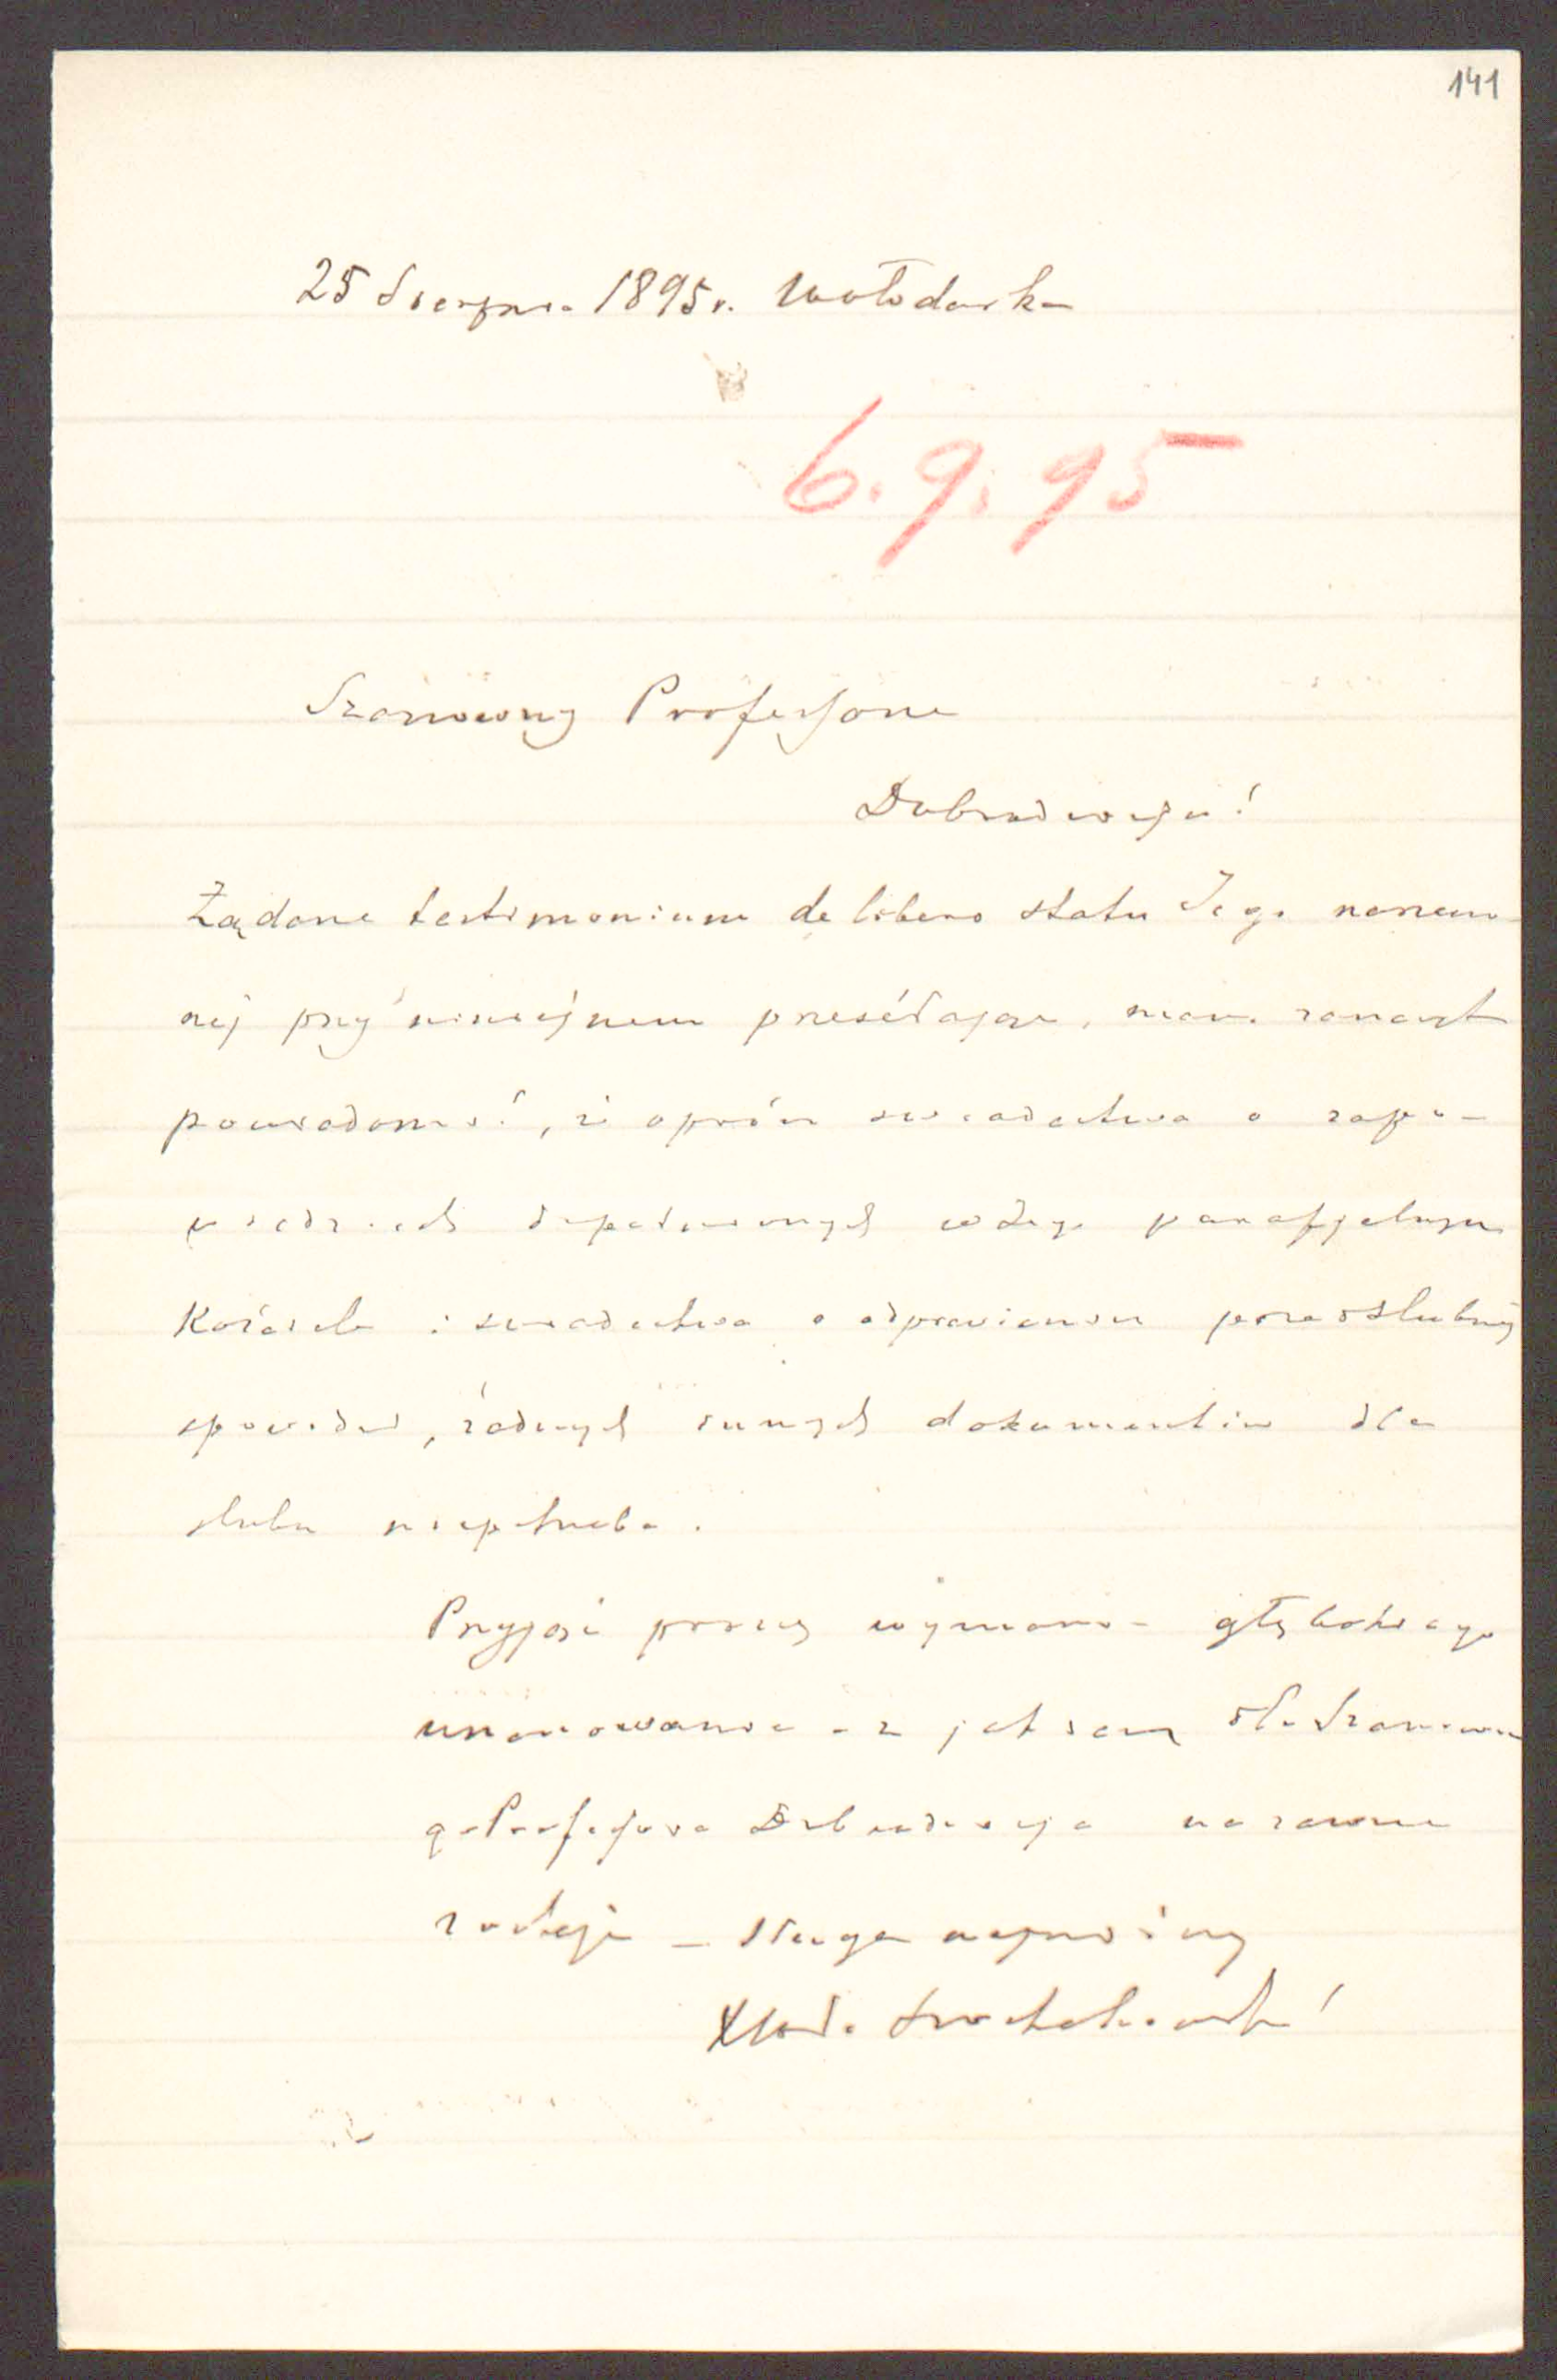 141
25 Sierpnia 1895 r. Wołodarka
6. 9. 95
Szanowny Profesorze
Dobrodzieju!
Żądane testimonium de libero statu Jego narzeczo-
nej przy niniejszem przesełając, mam zaszczyt
powiadomić, iż oprócz swiadectwa o zapo-
wiedziach dopełnionych parafjalnym
Kościele i swiadectwa o odprawieniu przedślubnej
spowiedzi, żadnych innych dokumentów dla
ślubu niepotrzeba.
Przyjąć proszę wyrazy głębokiego
uszanowania z jakiem dla Szanowne
go Profesora Dobrodzieja na zawsze
zostaję – sługa najniższy